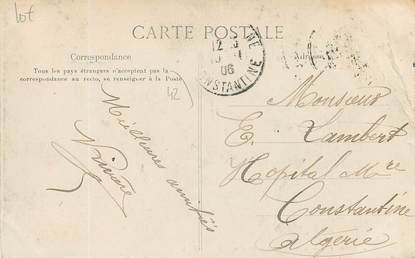 lot
CARTE POSTALE
Correspondance
Tous les pays étrangers n'acceptent pas la
correspondance au recto, se renseigner à la Poste
Adresse
12
06
CONSTANTINE
42
Meilleures amitiés
Monsieur
E. Lambert
Hopital Mre
Constantine
Algérie